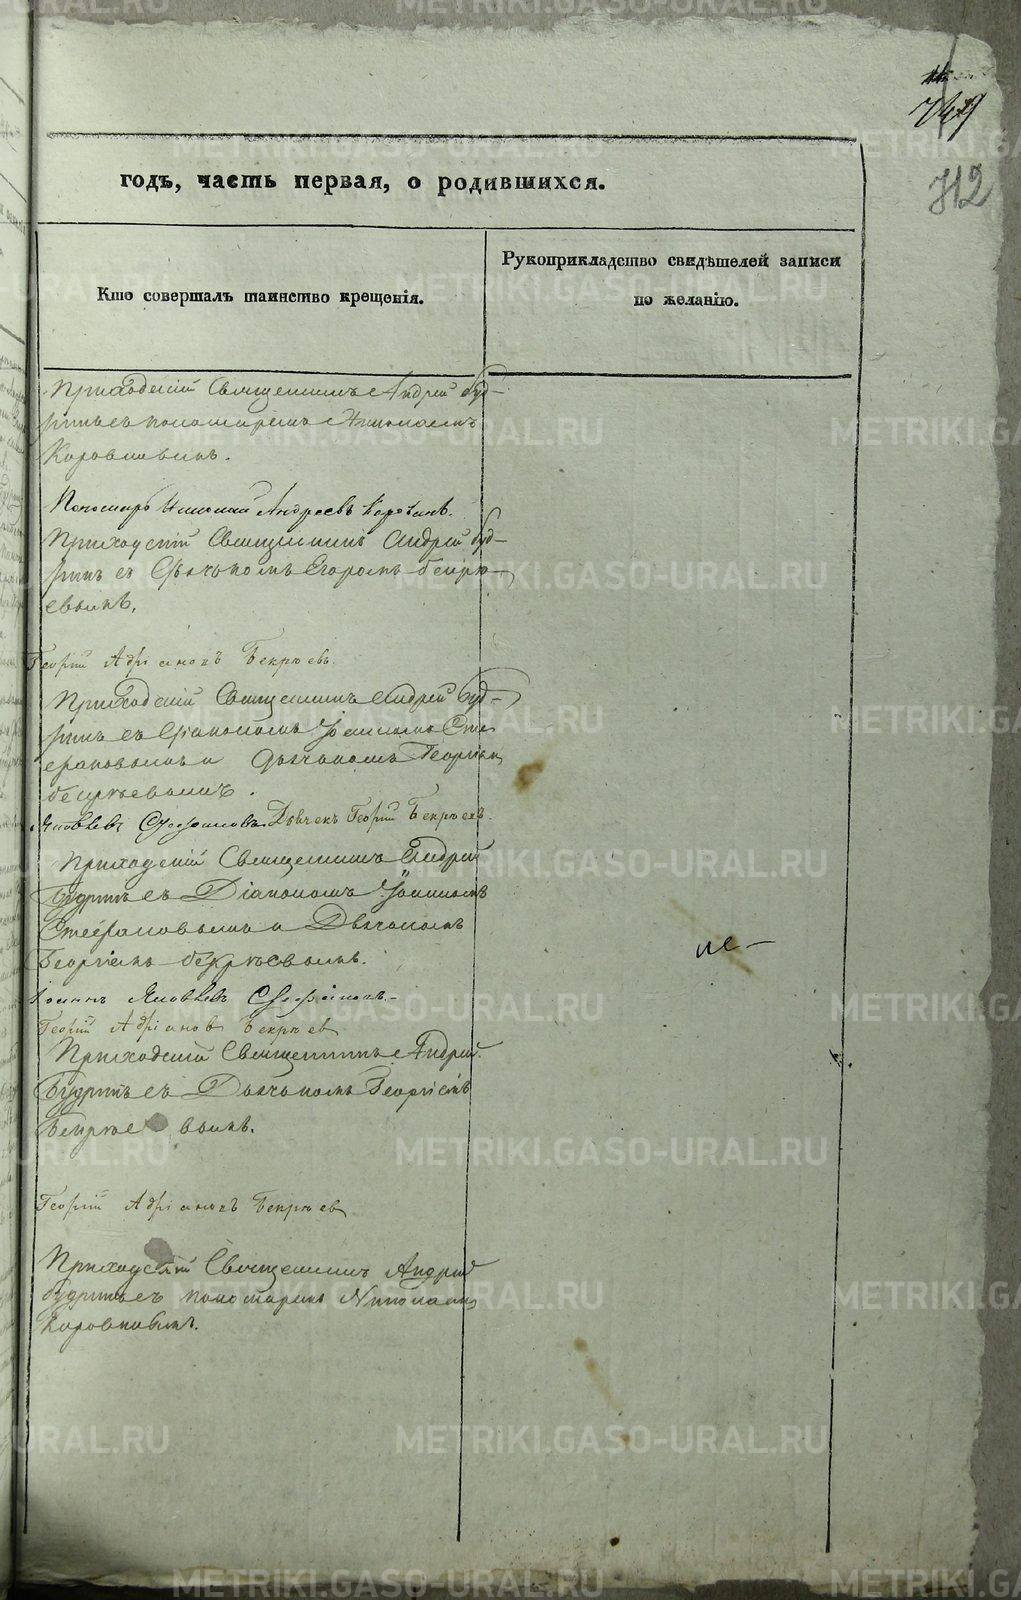 749
712
годъ, часть первая, о родившихся.
Кто совершалъ таинство крещенія.
Рукоприкладство свидѣтелей записи
по желанію.
Приходскій Священникъ Андрей Буд-
ринъ съ пономаремъ Николаемъ
Коровинымъ.
Пономарь Николай Андреевъ Коровинъ.
Приходскій Священникъ Андрей Буд-
ринъ съ Дьячкомъ Егоромъ Бекрѣ-
евымъ.
Георгій Адріановъ Бекрѣевъ
Приходскій Священникъ Андрей Буд-
ринъ съ Діакономъ Іоанномъ Сте
фановымъ и Дьячкомъ Георгіем
Бекрѣевымъ.
Яковлевъ Стефановъ Дьячекъ Георгій Бекрѣевъ.
Приходскій Священникъ Андрей
Будринъ съ Діакономъ Іоанномъ
Стефановымъ и Дьячкомъ
Георгіемъ Бекрѣевымъ.
Іоаннъ Яковлевъ Стефановъ
Георгій Адріанов Бекрѣев
Приходскій Священникъ Андрей
Будринъ съ Дьячкомъ Георгіемъ
Бекрѣе вымъ.
Георгій Адріановъ Бекрѣев
Приходскій Священникъ Андрей
Будринъ съ пономаремъ Николаемъ
Коровинымъ.
не-
METRIKI.GASO-URAL.RU